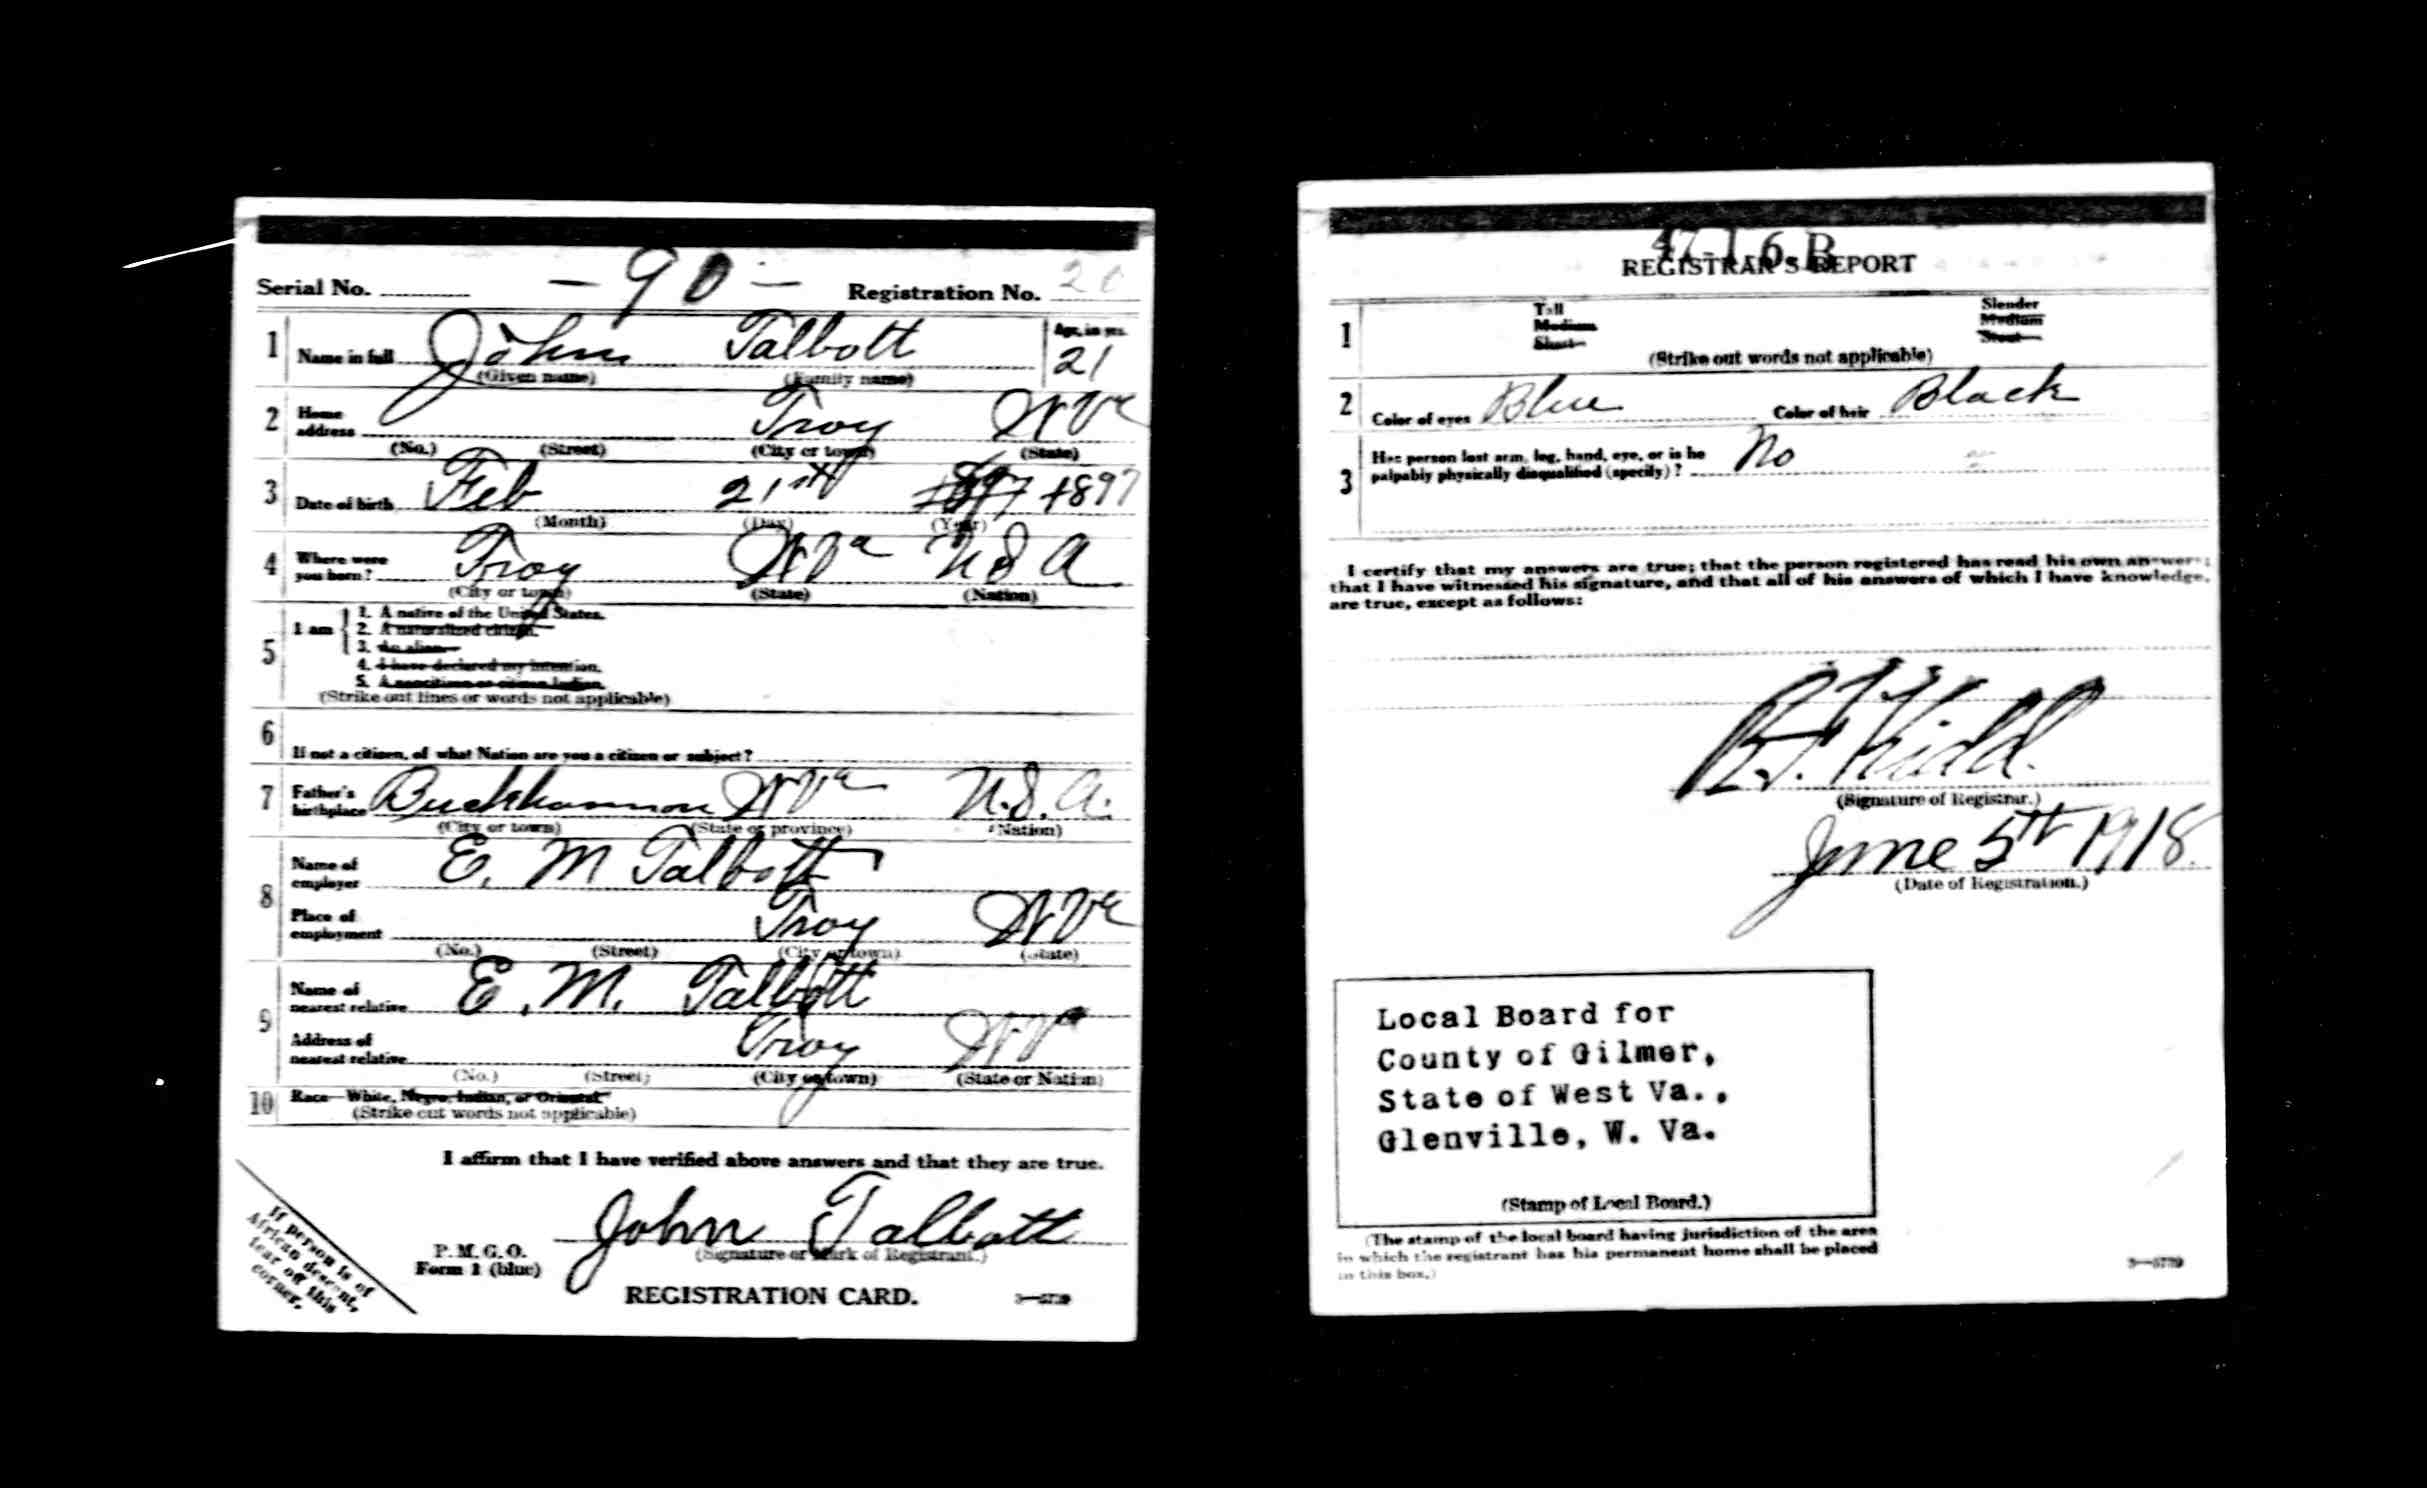 Serial No. - 90 - Registration No.
1 Name in full John Talbott Age, in yrs. 21
(Given name) (Family name)
2 Home address Troy W Va
(No.) (Street) (City or town) (State)
3 Date of birth Feb 21st 1897 1897
(Month) (Day) (Year)
4 Where were you born? Troy W Va U S A
(City or town) (State) (Nation)
5 I am
1. A native of the United States.
2. A naturalized citizen.
3. An alien
4. I have declared my intention.
5. A noncitizen or citizen Indian.
(Strike out lines or words not applicable)
6 If not a citizen, of what Nation are you a citizen or subject?
7 Father's birthplace Buckhannon W Va U. S. A.
(City or town) (State or province) (Nation)
8 Name of employer E. M Talbott
Place of employment Troy W Va
(No.) (Street) (City or town) (State)
9 Name of nearest relative E. M. Talbott
Address of nearest relative Troy W Va
(No.) (Street) (City or town) (State or Nation)
10 Race—White, Negro, Indian, or Oriental
(Strike out words not applicable)
I affirm that I have verified above answers and that they are true.
John Talbott
(Signature or Mark of Registrant.)
P. M. G. O.
Form 1 (blue)
REGISTRATION CARD.
If person is of
African descent,
tear off this
corner.
47-1-6. B
REGISTRAR'S REPORT
1 Tall Slender
Medium Medium
Short Stout
(Strike out words not applicable)
2 Color of eyes Blue Color of hair Black
3 Has person lost arm, leg, hand, eye, or is he
palpably physically disqualified (specify)? No
I certify that my answers are true; that the person registered has read his own answers;
that I have witnessed his signature, and that all of his answers of which I have knowledge,
are true, except as follows:
Kidd.
(Signature of Registrar.)
June 5th 1918.
(Date of Registration.)
Local Board for
County of Gilmer,
State of West Va.,
Glenville, W. Va.
(Stamp of Local Board.)
(The stamp of the local board having jurisdiction of the area
in which the registrant has his permanent home shall be placed
in this box.)